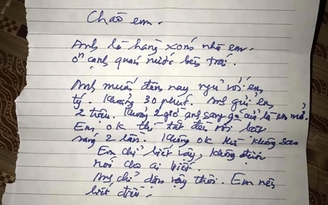 Chào em.
Anh là hàng xóm nhà em.
ở cạnh quán nước bên trái.
Anh muốn đêm nay ngủ với em
tý. Khoảng 30 phút. Anh gửi em
2 triệu. Khoảng 2 giờ anh sang gõ cửa là em mở.
Em ok thì tắt đèn nối bật
sáng 2 lần. Không ok thì không sao
Em chỉ biết vậy, không được
nói cho ai biết
Anh chỉ đơn vậy thôi. Em nên
biết điều.